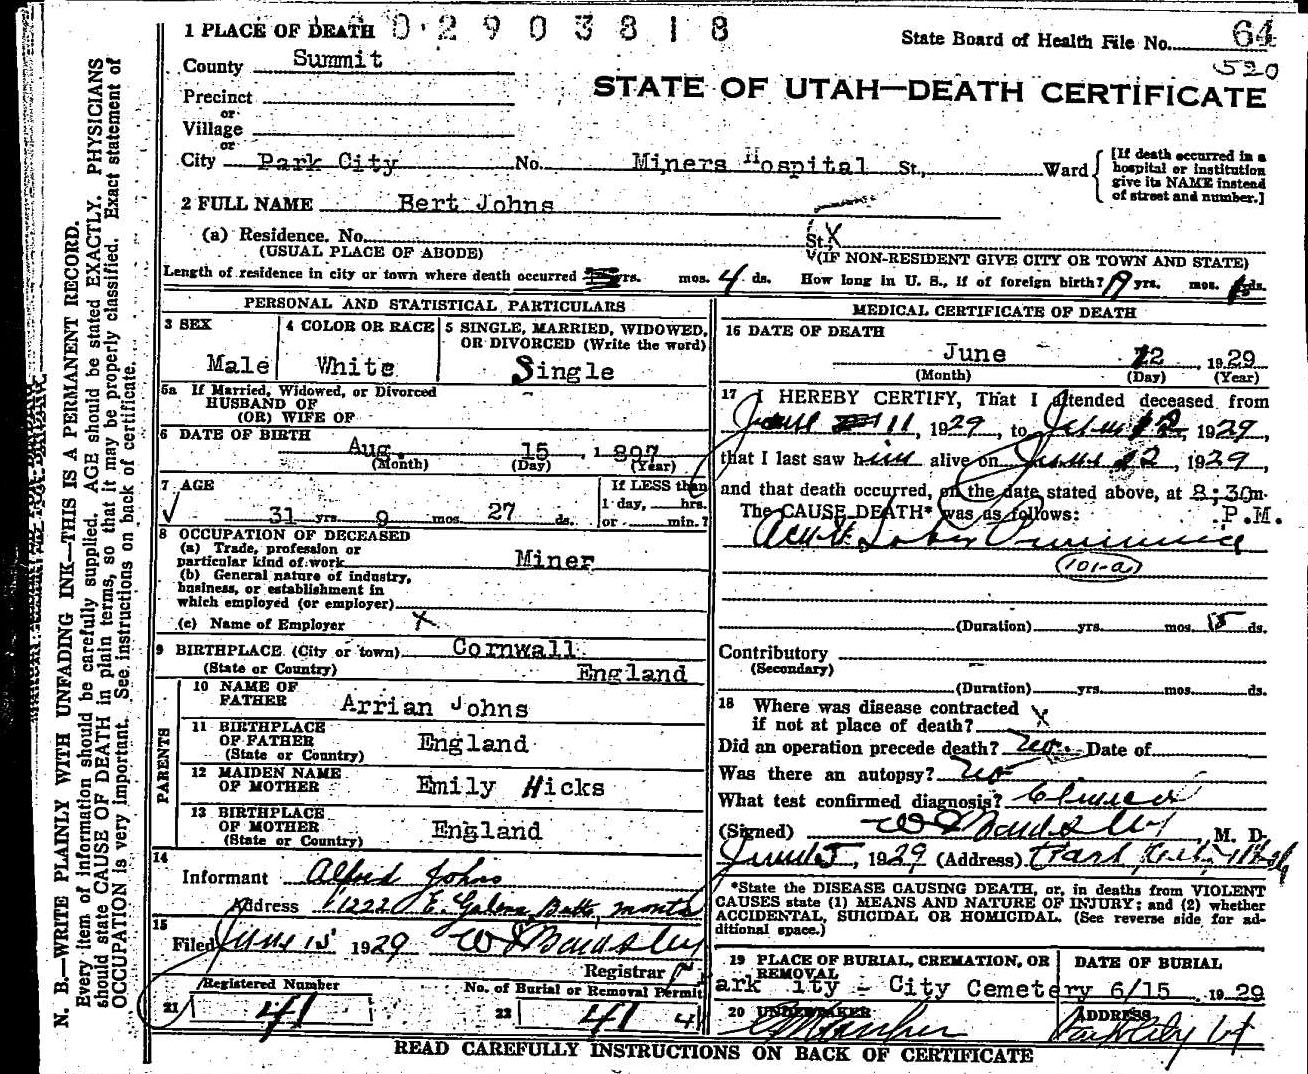 1 PLACE OF DEATH 0 2 9 0 3 3 1 8
State Board of Health File No. 64
520
County Summit
STATE OF UTAH—DEATH CERTIFICATE
Precinct
or
Village
or
City Park City No. Miners Hospital St., Ward
[If death occurred in a hospital or institution give its NAME instead of street and number.]
2 FULL NAME Bert Johns
(a) Residence. No. St. X
(USUAL PLACE OF ABODE) (IF NON-RESIDENT GIVE CITY OR TOWN AND STATE)
Length of residence in city or town where death occurred yrs. mos. 4 ds. How long in U. S., if of foreign birth? yrs. mos. ds.
PERSONAL AND STATISTICAL PARTICULARS
3 SEX
Male
4 COLOR OR RACE
White
5 SINGLE, MARRIED, WIDOWED, OR DIVORCED (Write the word)
Single
5a If Married, Widowed, or Divorced
HUSBAND OF
(OR) WIFE OF
6 DATE OF BIRTH
Aug. 15, 1897
(Month) (Day) (Year)
7 AGE
31 yrs. 9 mos. 27 ds.
If LESS than
1 day, hrs.
or min.?
8 OCCUPATION OF DECEASED
(a) Trade, profession or
particular kind of work Miner
(b) General nature of industry,
business, or establishment in
which employed (or employer)
(c) Name of Employer X
9 BIRTHPLACE (City or town) Cornwall
(State or Country) England
PARENTS
10 NAME OF
FATHER Arrian Johns
11 BIRTHPLACE
OF FATHER England
(State or Country)
12 MAIDEN NAME
OF MOTHER Emily Hicks
13 BIRTHPLACE
OF MOTHER England
(State or Country)
14
Informant Alfred Johns
Address 1222 E. Galena, Butte, Monta
15
Filed June 15 1929 W J Bardsley
Registrar
21 Registered Number 41
22 No. of Burial or Removal Permit 41
MEDICAL CERTIFICATE OF DEATH
16 DATE OF DEATH
June 12, 1929
(Month) (Day) (Year)
17 I HEREBY CERTIFY, That I attended deceased from
June 11, 1929, to June 12, 1929,
that I last saw him alive on June 12, 1929,
and that death occurred, on the date stated above, at 8:30m.
The CAUSE DEATH* was as follows: P.M.
Acute Lobar Pneumonia
(101-a)
(Duration) yrs. mos. ds.
Contributory
(Secondary)
(Duration) yrs. mos. ds.
18 Where was disease contracted
if not at place of death? X
Did an operation precede death? no. Date of
Was there an autopsy? no
What test confirmed diagnosis? Clinical
(Signed) W J Bardsley M. D.
June 15, 1929 (Address) Park City, Utah
*State the DISEASE CAUSING DEATH, or, in deaths from VIOLENT
CAUSES state (1) MEANS AND NATURE OF INJURY; and (2) whether
ACCIDENTAL, SUICIDAL OR HOMICIDAL. (See reverse side for ad-
ditional space.)
19 PLACE OF BURIAL, CREMATION, OR
REMOVAL
DATE OF BURIAL
ark ity - City Cemetery 6/15 1929
20 UNDERTAKER ADDRESS
Park City Ut
READ CAREFULLY INSTRUCTIONS ON BACK OF CERTIFICATE
N. B.—WRITE PLAINLY WITH UNFADING INK—THIS IS A PERMANENT RECORD.
Every item of information should be carefully supplied. AGE should be stated EXACTLY. PHYSICIANS
should state CAUSE OF DEATH in plain terms, so that it may be properly classified. Exact statement of
OCCUPATION is very important. See instructions on back of certificate.